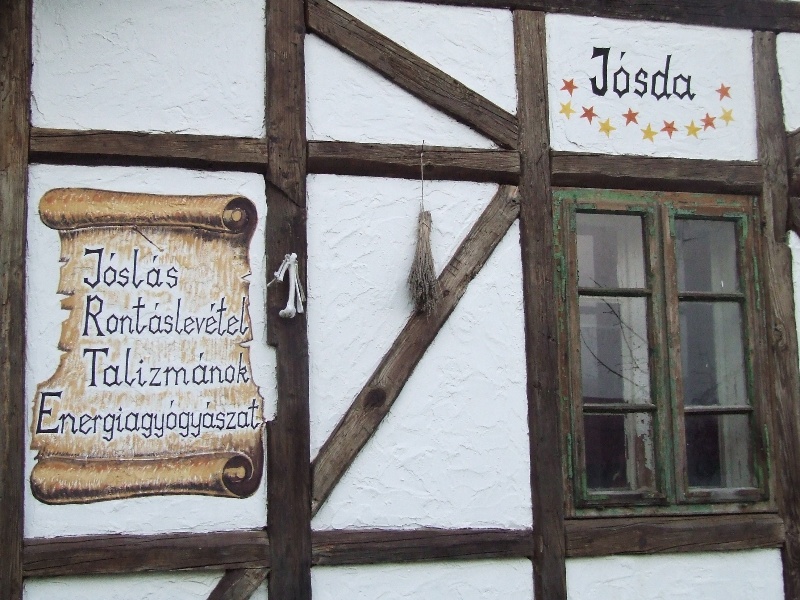 Jósda
Jóslás
Rontáslevétel
Talizmánok
Energiagyógyászat